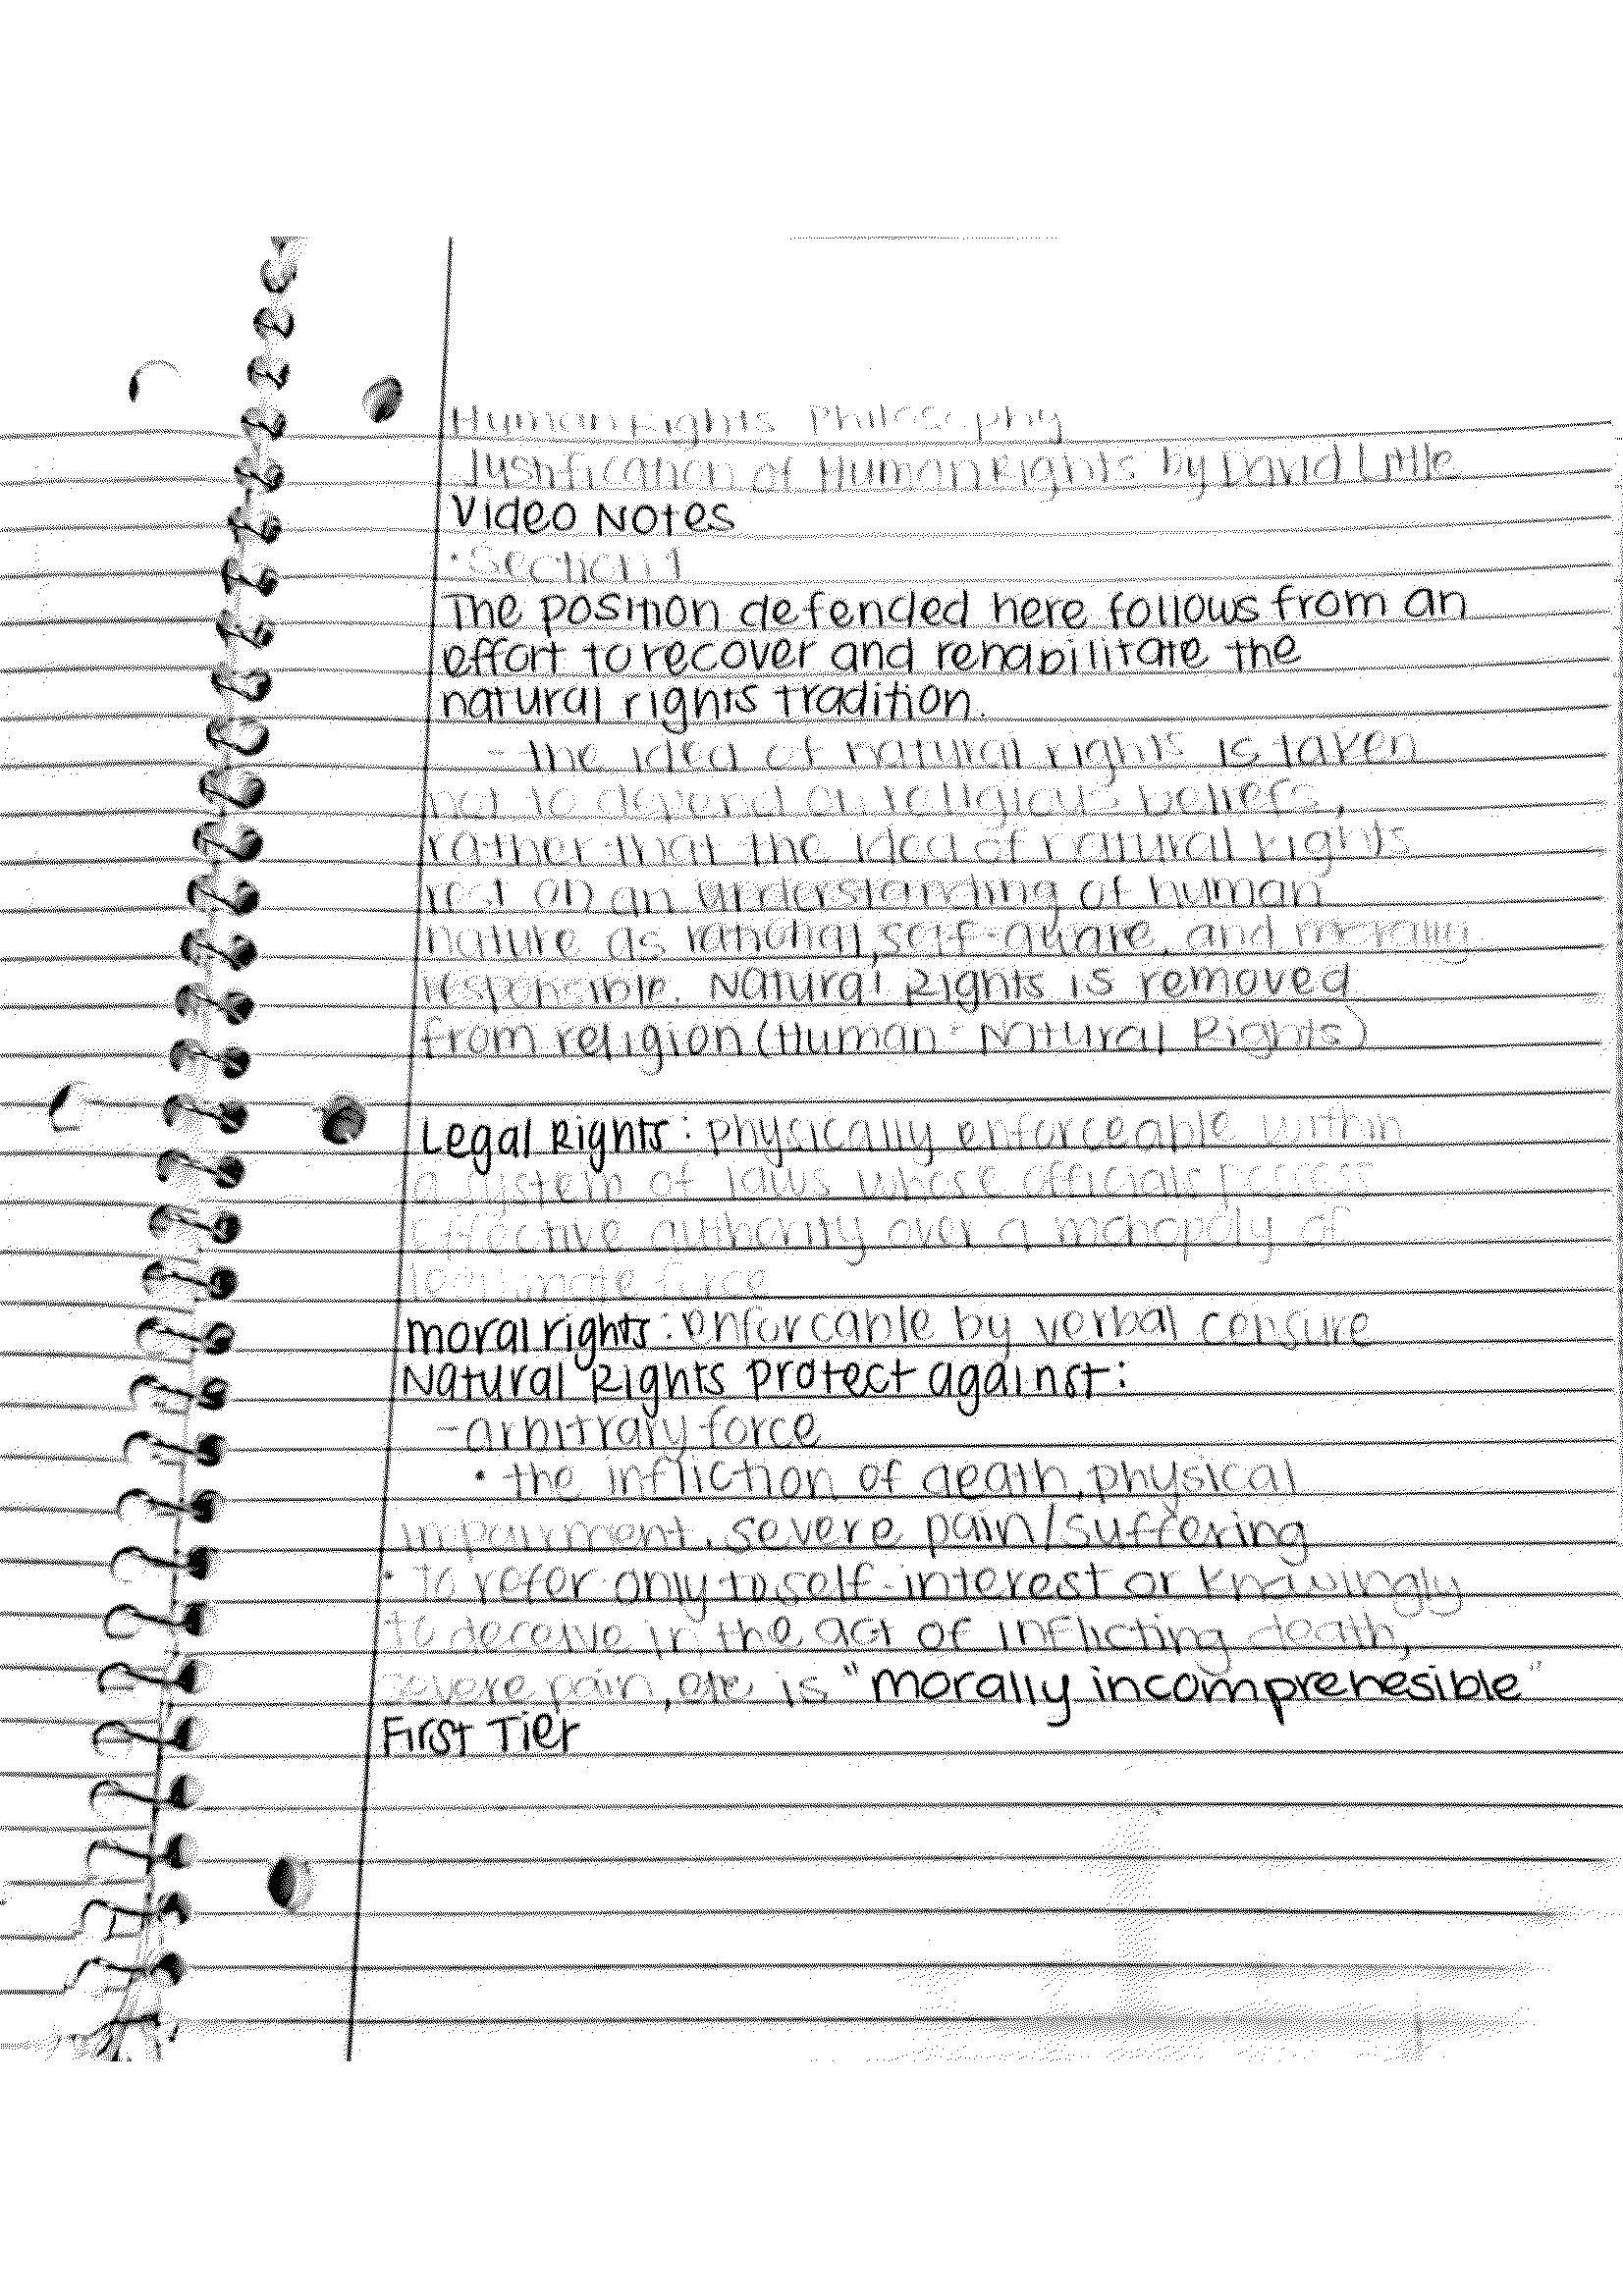 Human Rights Philosophy
Justification of Human Rights by David Little
Video Notes
• Section 1
The position defended here follows from an
effort to recover and rehabilitate the
natural rights tradition.
- the idea of natural rights is taken
not to depend on religious beliefs,
rather that the idea of natural rights
rest on an understanding of human
nature as rational, self-aware, and morally
responsible. Natural Rights is removed
from religion (Human = Natural Rights)
Legal Rights: physically enforceable within
a system of laws whose officials possess
effective authority over a monopoly of
legitimate force
moral rights: enforcable by verbal censure
Natural Rights protect against:
- arbitrary force
• the infliction of death, physical
impairment, severe pain/suffering
• to refer only to self-interest or knowingly
to deceive in the act of inflicting death,
severe pain, etc is "morally incomprehesible"
First Tier